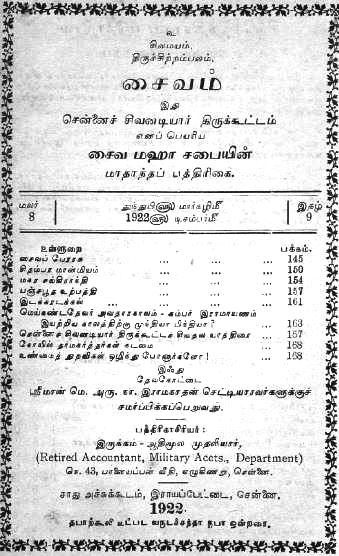 உ
சிவமயம்.
திருச்சிற்றம்பலம்.
சைவம்
இது
சென்னைச் சிவனடியார் திருக்கூட்டம்
எனப் பெயரிய
சைவ மஹா சபையின்
மாதாந்தப் பத்திரிகை.
மலர் 8
துந்துபி௵ மார்கழி௴
1922௵ டிசம்பர்௴
இதழ் 9
உள்ளுறை பக்கம்.
சைவப் பேரரசு ... ... ... 145
சிதம்பர மான்மியம் ... ... ... 150
மகர சங்கிராந்தி ... ... ... 154
பஞ்சபூத உற்பத்தி ... ... ... 157
இடக்கரடக்கல் ... ... ... ... 161
மெய்கண்டதேவர் அவதாரகாலம் - கம்பர் இராமாயணம்
இயற்றிய காலத்திற்கு முந்தியா பிந்தியா? ... 163
சென்னைச் சிவனடியார் திருக்கூட்டச் சிவதல யாத்திரை ... 157
கோயில் தர்மகர்த்தர்கள் கடமை ... ... 168
உண்மைத் துறவிகள் ஒழிந்து போனார்களோ! ... 168
இஃது
தேவகோட்டை
ஸ்ரீமான் மெ. அரு. கா. இராமநாதன் செட்டியாரவர்களுக்குச்
சமர்ப்பிக்கப்பெறுவது.
பத்திரிகாசிரியர்:
இருக்கம் - ஆதிமூல முதலியார்,
(Retired Accountant, Military Accts., Department)
செ. 43, பானையப்பன் வீதி, எழுகிணறு, சென்னை.
சாது அச்சுக்கூடம், இராயப்பேட்டை, சென்னை.
1922.
தபாற்கூலி யுட்பட வருடச்சந்தா ரூபா ஒன்றரை.